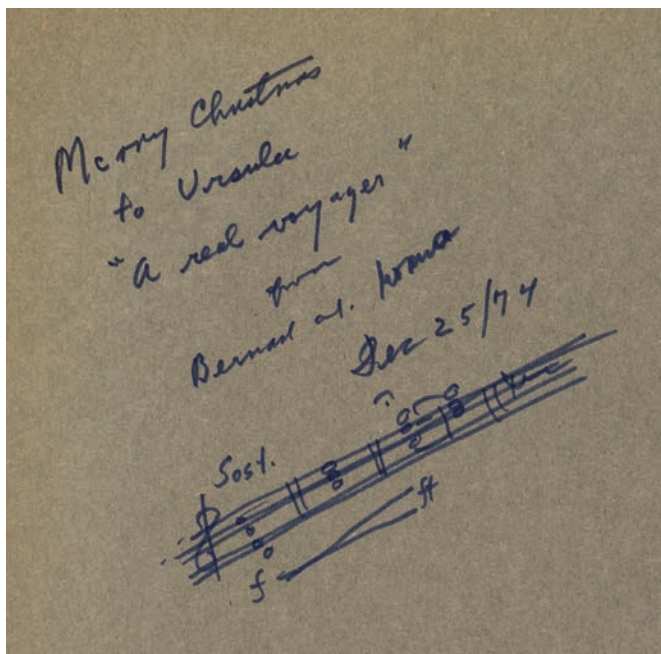 Merry Christmas
to Ursula
"A real voyager"
from
Bernard and. Norma
Dec 25/74
Sost.
f ff